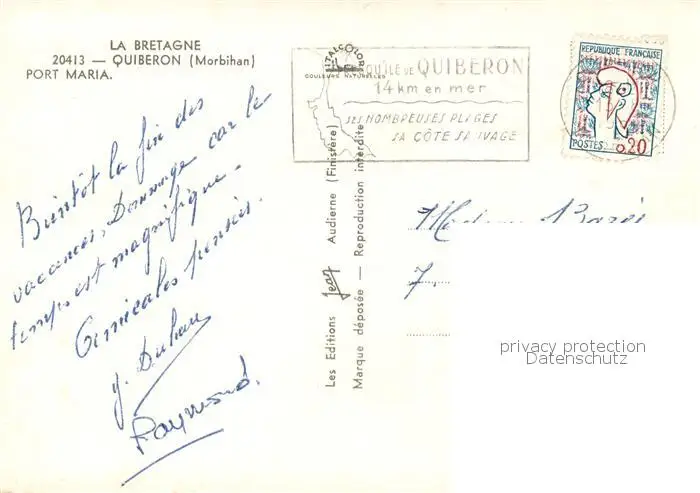 LA BRETAGNE
20413 — QUIBERON (Morbihan)
PORT MARIA.
Bientôt la fin des
vacances, Dommage car le
temps est magnifique.
Amicales pensées.
Raymond.
Les Editions Jean Audierne (Finistère)
Marque déposée — Reproduction interdite
ITALCOLOR
COULEURS NATURELLES
QUIBERON
14 km en mer
SES NOMBREUSES PLAGES
SA CÔTE SAUVAGE
REPUBLIQUE FRANÇAISE
POSTES 0,20
Madame
7.
privacy protection
Datenschutz